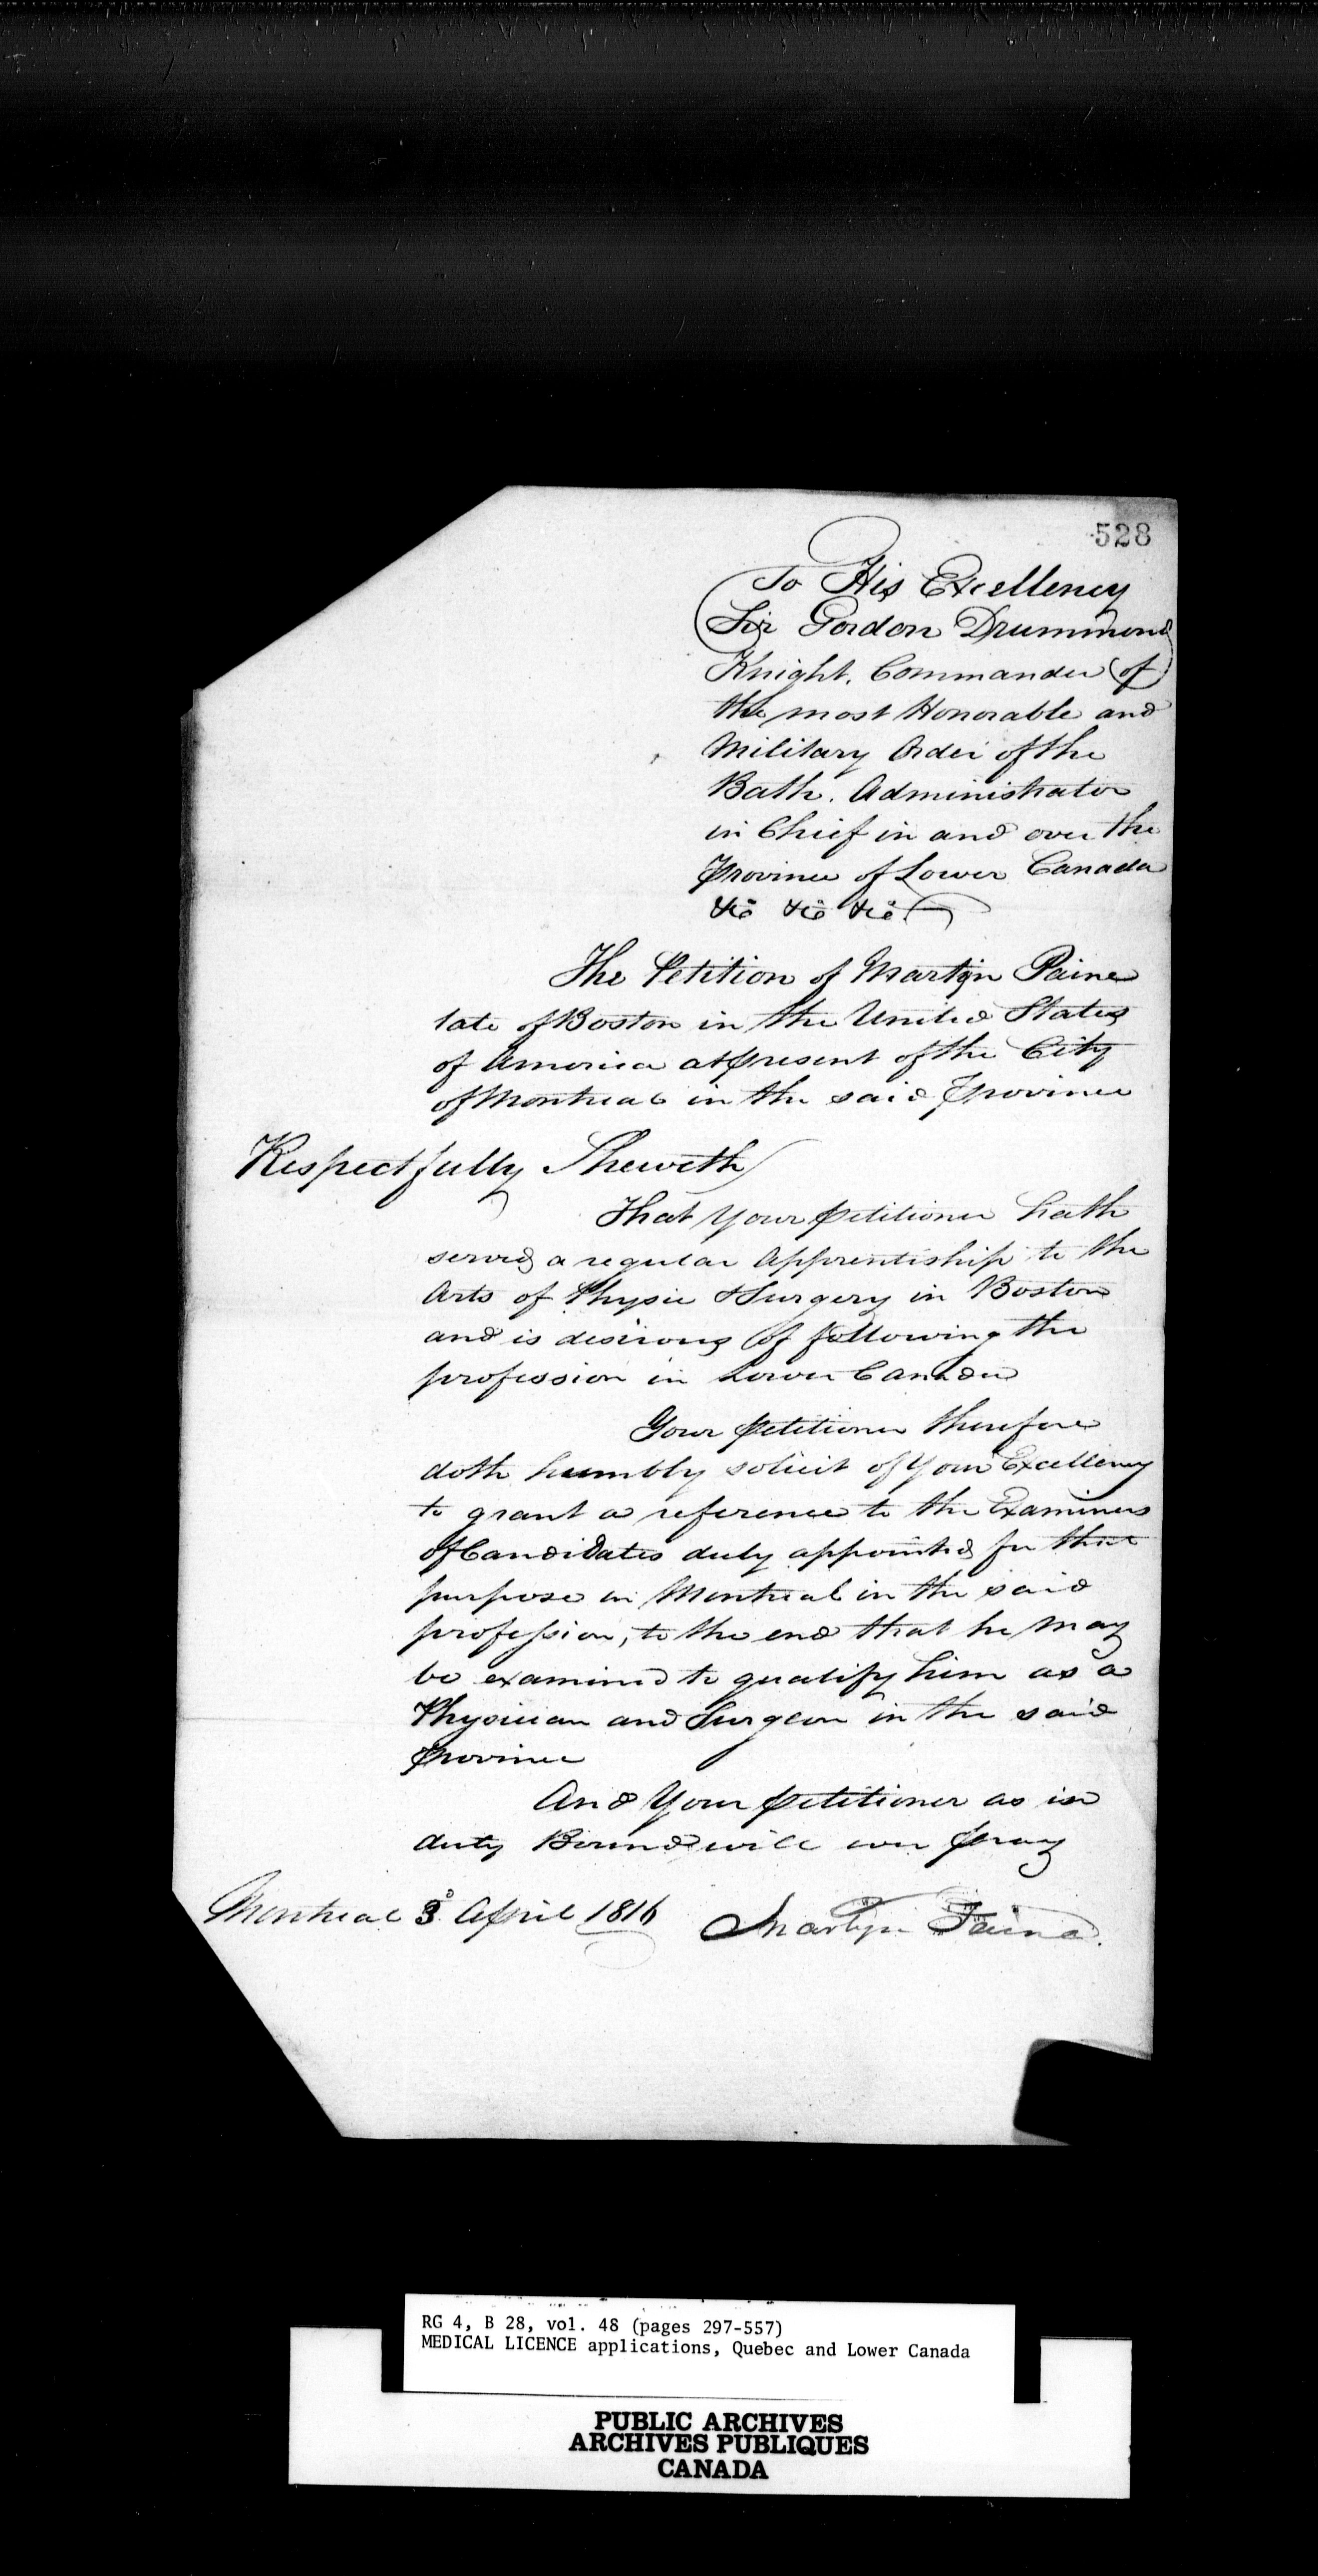 528
To His Excellency
Sir Gordon Drummond
Knight. Commander of
the most Honorable and
Military Order of the
Bath. Administrator
in Chief in and over the
Province of Lower Canada
&c &c &c
The Petition of Martyn Paine
late of Boston in the United States
of America at present of the City
of Montreal in the said Province
Respectfully Sheweth
That Your petitioner hath
served a regular Apprentiship to the
Arts of Physic & Surgery in Boston
and is desirous of following the
profession in Lower Canada
Your petitioner therefore
doth humbly solicit of Your Excellency
to grant a reference to the Examiners
of Candidates duly appointed for that
purpose in Montreal in the said
profession, to the end that he may
be examined to qualify him as a
Physician and Surgeon in the said
Province
And Your petitioner as in
duty Bound will ever pray
Montreal 3d April 1816 Martyn Paine.
RG 4, B 28, vol. 48 (pages 297-557)
MEDICAL LICENCE applications, Quebec and Lower Canada
PUBLIC ARCHIVES
ARCHIVES PUBLIQUES
CANADA